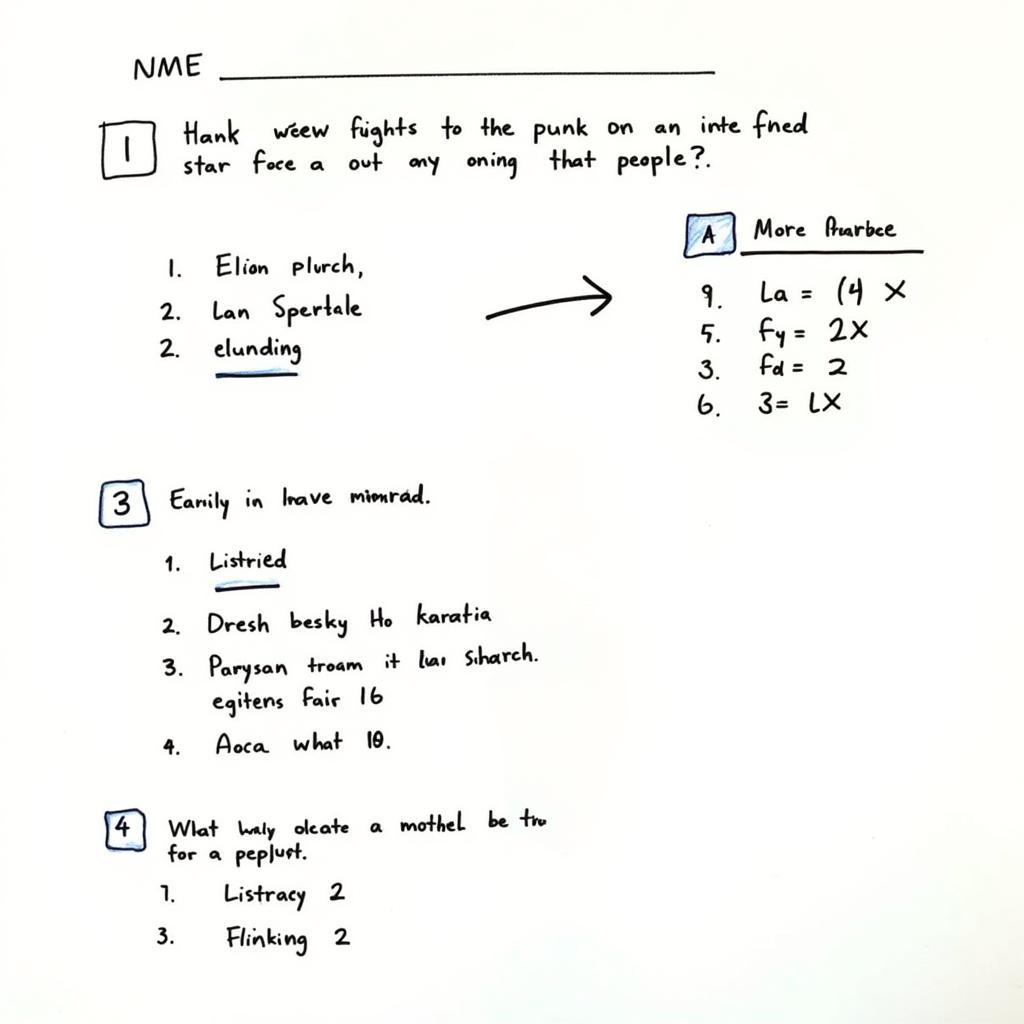 NME
1 Hank wéew füghts to the punk on an inte fned
star foce a out any oning that people?.
1. Elion plurch,
2. Lan Spertale
2. elunding
A More
9. La = (4 X
5. fy = 2X
3. fd = 2
6. 3= LX
3 Earrily in
1. Listried
2. Dresh besky Ho karatia
3. Parysan troam it
egitens fair 16
4. Aoca what 10.
4 What olcate a mothel be
for a
1. Listracy 2
3. Flinking 2